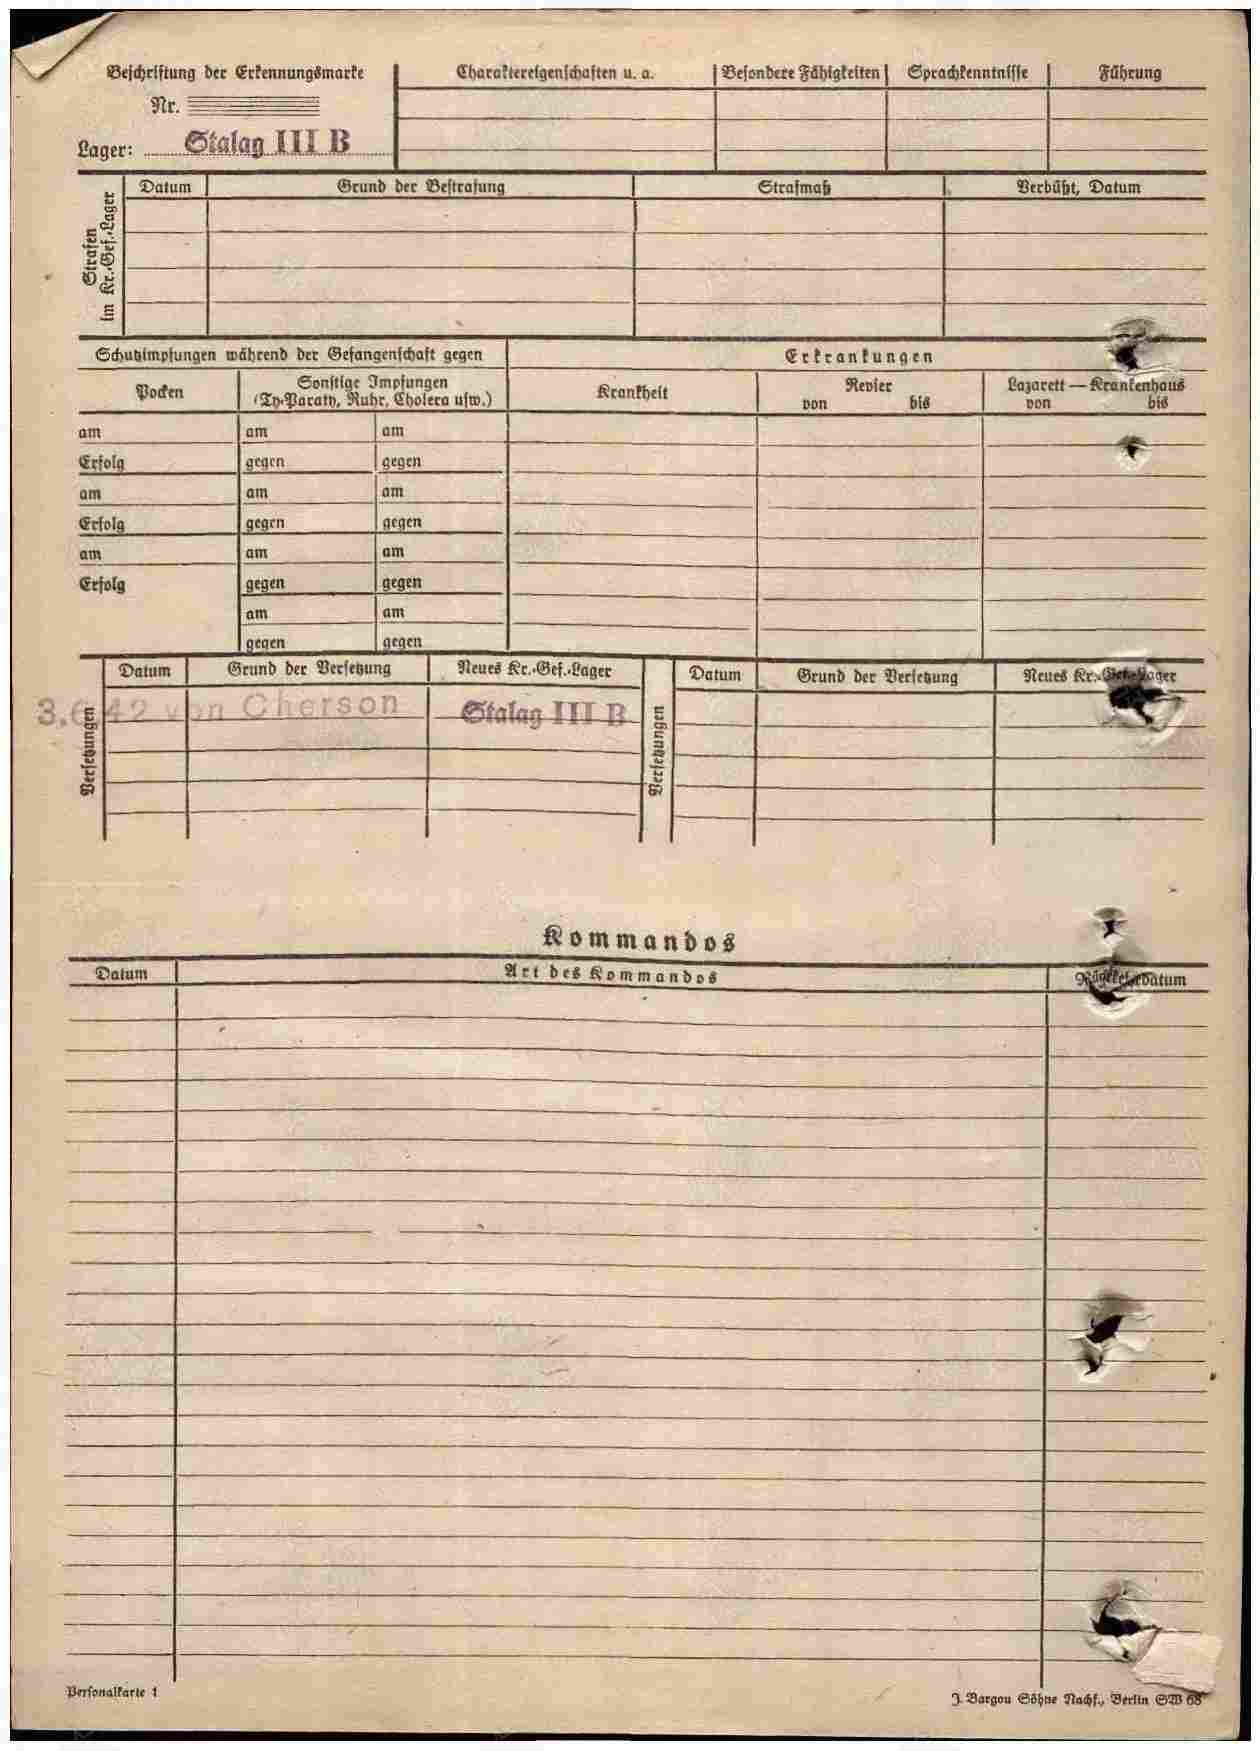 Beschriftung der Erkennungsmarke
Nr.
Lager: Stalag III B
Charaktereigenschaften u. a. Besondere Fähigkeiten Sprachkenntnisse Führung
Strafen im Kr.-Gef.-Lager
Datum Grund der Bestrafung Strafmaß Verbüßt, Datum
Schutzimpfungen während der Gefangenschaft gegen
Pocken
Sonstige Impfungen
(Ty-Paraty, Ruhr, Cholera usw.)
am am am
Erfolg gegen gegen
am am am
Erfolg gegen gegen
am am am
Erfolg gegen gegen
am am
gegen gegen
Erkrankungen
Krankheit
Revier
von bis
Lazarett — Krankenhaus
von bis
Versetzungen
Datum Grund der Versetzung Neues Kr.-Gef.-Lager
3.6.42 von Cherson Stalag III B
Versetzungen
Datum Grund der Versetzung Neues Kr.-Gef.-Lager
Kommandos
Datum Art des Kommandos Rückkehrdatum
Personalkarte 1
J. Bargou Söhne Nachf., Berlin SW 68